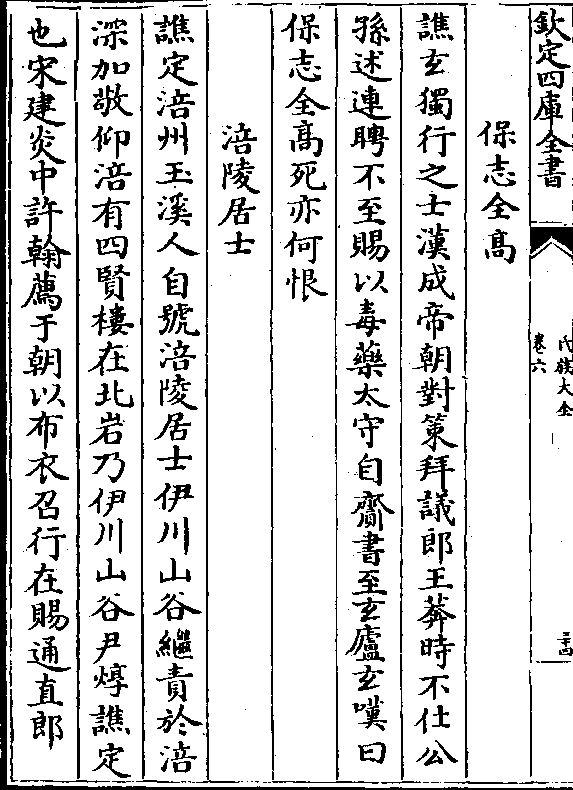 欽定四庫全書
氏族大全
卷六
二十四
保志全髙
譙玄獨行之士漢成帝朝對策拜議郎王莾時不仕公
孫述連聘不至賜以毒藥太守自齎書至玄廬玄嘆曰
保志全髙死亦何恨
涪陵居士
譙定涪州玉溪人自號涪陵居士伊川山谷繼責於涪
深加敬仰涪有四賢樓在北岩乃伊川山谷尹焞譙定
也宋建炎中許翰薦于朝以布衣召行在賜通直郎